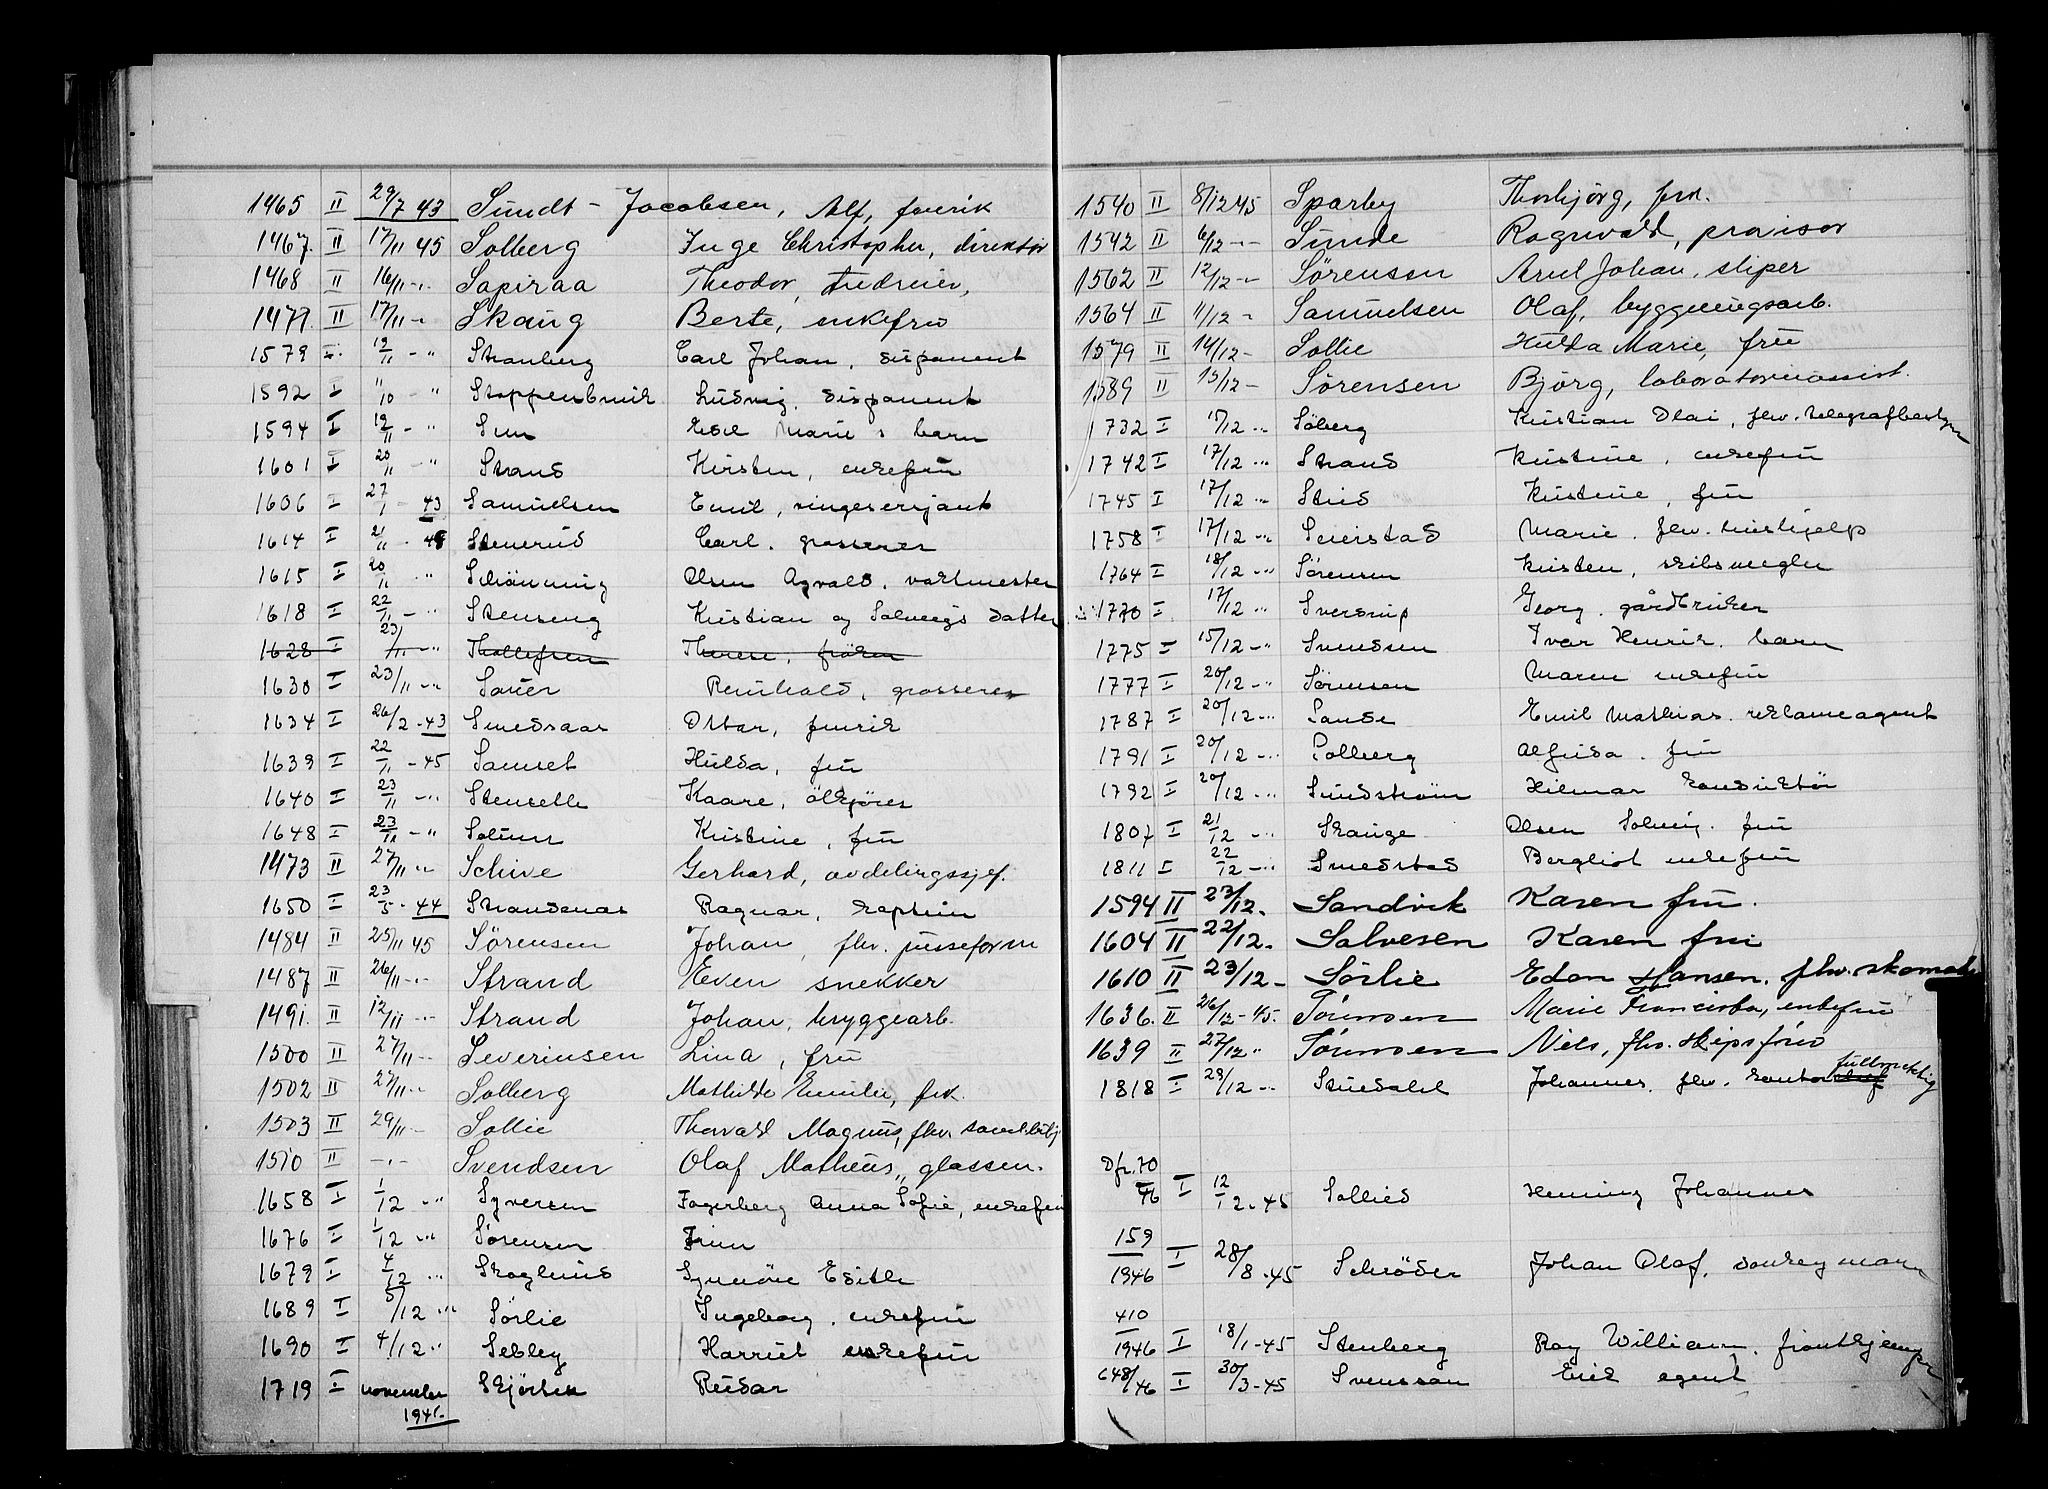 1465 II 29/7 43 Sundt - Jacobsen, Alf, fenrik
1467. II 17/11 45 Solberg Inge Christopher, direktør
1468 II 16/11 -"- Sapiraa Theodor,
1477. II 17/11 -"- Skaug Berte, enkefru
1579 I. 19/11 - " Stranberg Carl Johan, disponent
1592 I 11/10 - " Stoppenbrink Ludvig. disponent
1594 I 19/11 - " Sun Marie s barn
1601 I 20/11 - " Strand Kirsten, enkefru
1606 I 27/1 - 43 Samuelsen Emil, vingesersjant
1614 I 21/11 - 45 Stenerud Carl. grosserer
1615 I 20/11 " Schönning Olsen Agvald. vaktmester
1618 I 22/11 - " Stenseng Kristian og Solveigs datter
1628 I 23/11 -" Thollefsen Therese, frøken
1630 I 23/11 -" Sauer Reinhold, grosserer
1634 I 26/2 - 43 Smedsaas Ottar, fenrik
1639 I 22/11 - 45 Samset Hulda, fru
1640 I 23/11 -" Stensette Kaare, ölkjörer
1648 I 23/11 -" Solum Kristine, fru
1473 II 27/11 -" Schive Gerhard, avdelingssjef.
1650 I 23/5 - 44 Strandenas Ragnar, kaptein
1484 II 25/11 45 Sørensen Johan, fhv. pusseform
1487 II 26/11 -"- Strand Even snekker
1491. II 12/11 -"- Strand Johan, bryggearb.
1500 II 27/11 - Severinsen Lina, fru
1502 II 27/11 -"- Solberg Mathilde Emilie, frk.
1503 II 29/11 - Sollie Thorvald Magnus, fhv.
1510 II -"- Svendsen Olaf Matheus, glassm.
1658 I 1/12 " Syversen Fagerberg Anna Sofie, enkefru
1676 I 1/12 " Sørensen Finn
1679 I 4/12 " Skoglund Synnöve Edith
1689 I 5/12 " Sörlie Ingeborg. enkefru
1690 I 4/12 " Sebley Harriet enkefru
1719 I november 1945. Skjörlek Reidar
1540 II 8/12 45 Sparby Thorbjörg, frk.
1542 II 6/12 -"- Sunde Ragnvald, provisor
1562 II 12/12 -"- Sørensen Arvel Johan, sliper
1564 II 11/12 - Samuelsen Olaf, byggningsarb.
1579 II 14/12 - Sollie Hulda Marie, fru
1589 II 15/12 - Sørensen Bjørg, laboratorieassist.
1732 I 15/12 -" Söberg Kristian Olai, fhv. telegrafbestyrer
1742 I 17/12 -" Strand Kristine, enkefru
1745 I 17/12 -" Stud Kristine, fru
1758 I 17/12 -" Seierstad Marie. fhv. hushjelp
1764 I 18/12 -" Sörensen Kristen, skibsmegler
1770 I 17/12 " Sverdrup Georg. gårdbruker
1775 I 15/12 -" Svendsen Ivar Henrik. barn
1777 I 20/12 -" Sörensen Maren enkefru
1787 I 20/12 -" Sande Emil Mathias. reklameagent
1791 I 20/12 -" Solberg Alfrida. fru
1792 I 20/12 -" Sundström Hilmar konduktör
1807 I 21/12 -" Skauge Olsen Solveig. fru
1811 I 22/12 -" Smedstad Bergliot enkefru
1594 II 23/12. Sandvik Karen fru.
1604 II 22/12. Salvesen Karen fru
1610 II 23/12 - Sörlie Edon Hansen. fhv. skomak
1636. II 26/12 - 45. Sørensen Marie Francisca, enkefru
1639 II 27/12 " Sørensen Niels, fhv. skipsfører
fullmektig
1818 I 28/12 -" Stuedahl Johannes. fhv. kontorsjef
Dfr. 70
/46 I 12/12 - 45 Sollied Henning Johannes
159
1946 I 28/8 - 45 Schrøder Johan Olaf, donkeymann
410
1946 I 18/1 - 45 Stenberg Roy William. frontkjemper
648/46 I 30/3 - 45 Svensson Erik agent